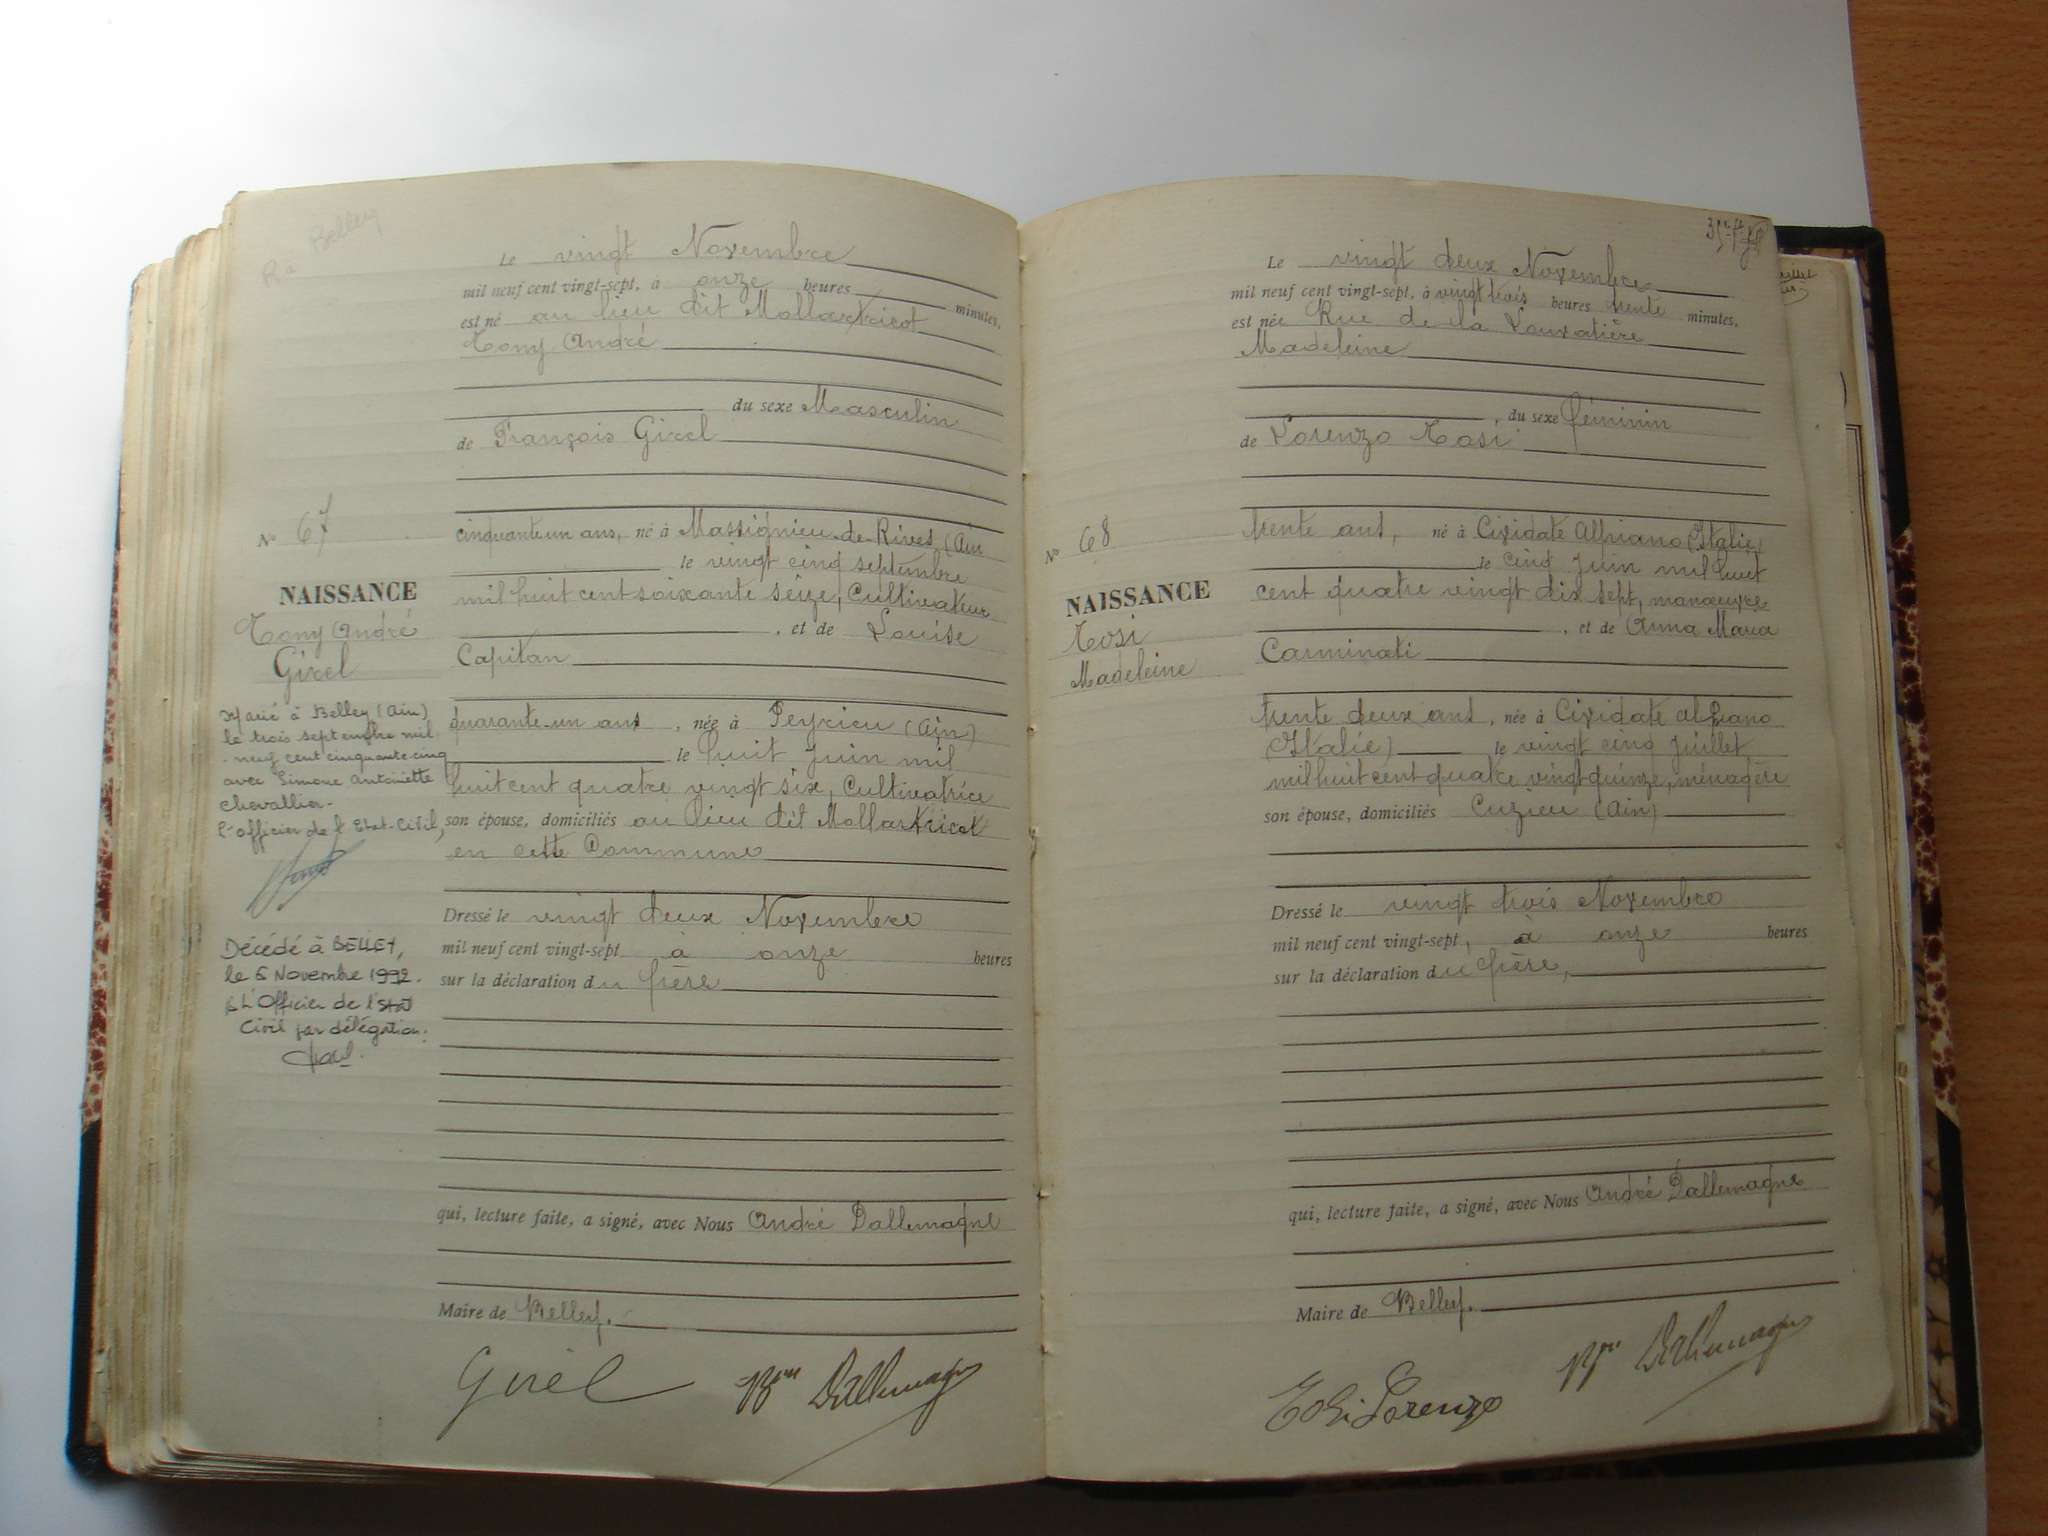 Belley
Le vingt Novembre
mil neuf cent vingt-sept, à onze heures minutes,
est né au lieu dit Mollartricot
Tony André
du sexe Masculin
de François Girel
N° 67
cinquante un ans, né à Massignieu-de-Rives (Ain
le vingt cinq septembre
mil huit cent soixante seize, Cultivateur
, et de Louise
Capitan
NAISSANCE
Tony André
Girel
quarante-un ans , née à Peyrieu (Ain)
le huit Juin mil
huit cent quatre vingt six, Cultivatrice
son épouse, domiciliés au lieu dit Mollartricot
en cette Commune
Marié à Belley (Ain)
le trois septembre mil
neuf cent cinquante cinq
avec Simone Antoinette
Chevallier-
l'officier de l'Etat-Civil,
Dressé le vingt deux Novembre
mil neuf cent vingt-sept à onze heures
sur la déclaration du Père
Décédé à BELLEY,
le 6 Novembre 1992.
L'Officier de l'Etat
Civil par délégation:
qui, lecture faite, a signé, avec Nous André Dallemagne
Maire de Belley.
Girel Dallemagne
Le vingt deux Novembre
mil neuf cent vingt-sept, à vingt trois heures trente minutes,
est née Rue de la Louvatière
Madeleine
, du sexe féminin
de Lorenzo Tosi
N° 68
trente ans, né à Cividate Alpiano (Italie)
le cinq Juin mil huit
cent quatre vingt dix sept, manœuvre
, et de Anna Maria
Carminati
NAISSANCE
Tosi
Madeleine
trente deux ans , née à Cividate alpiano
(Italie) le vingt cinq Juillet
mil huit cent quatre vingt quinze, ménagère
son épouse, domiciliés Cuzieu (Ain)
Dressé le vingt trois Novembre
mil neuf cent vingt-sept, à onze heures
sur la déclaration du Père,
qui, lecture faite, a signé, avec Nous André Dallemagne
Maire de Belley.
Tosi Lorenzo Dallemagne